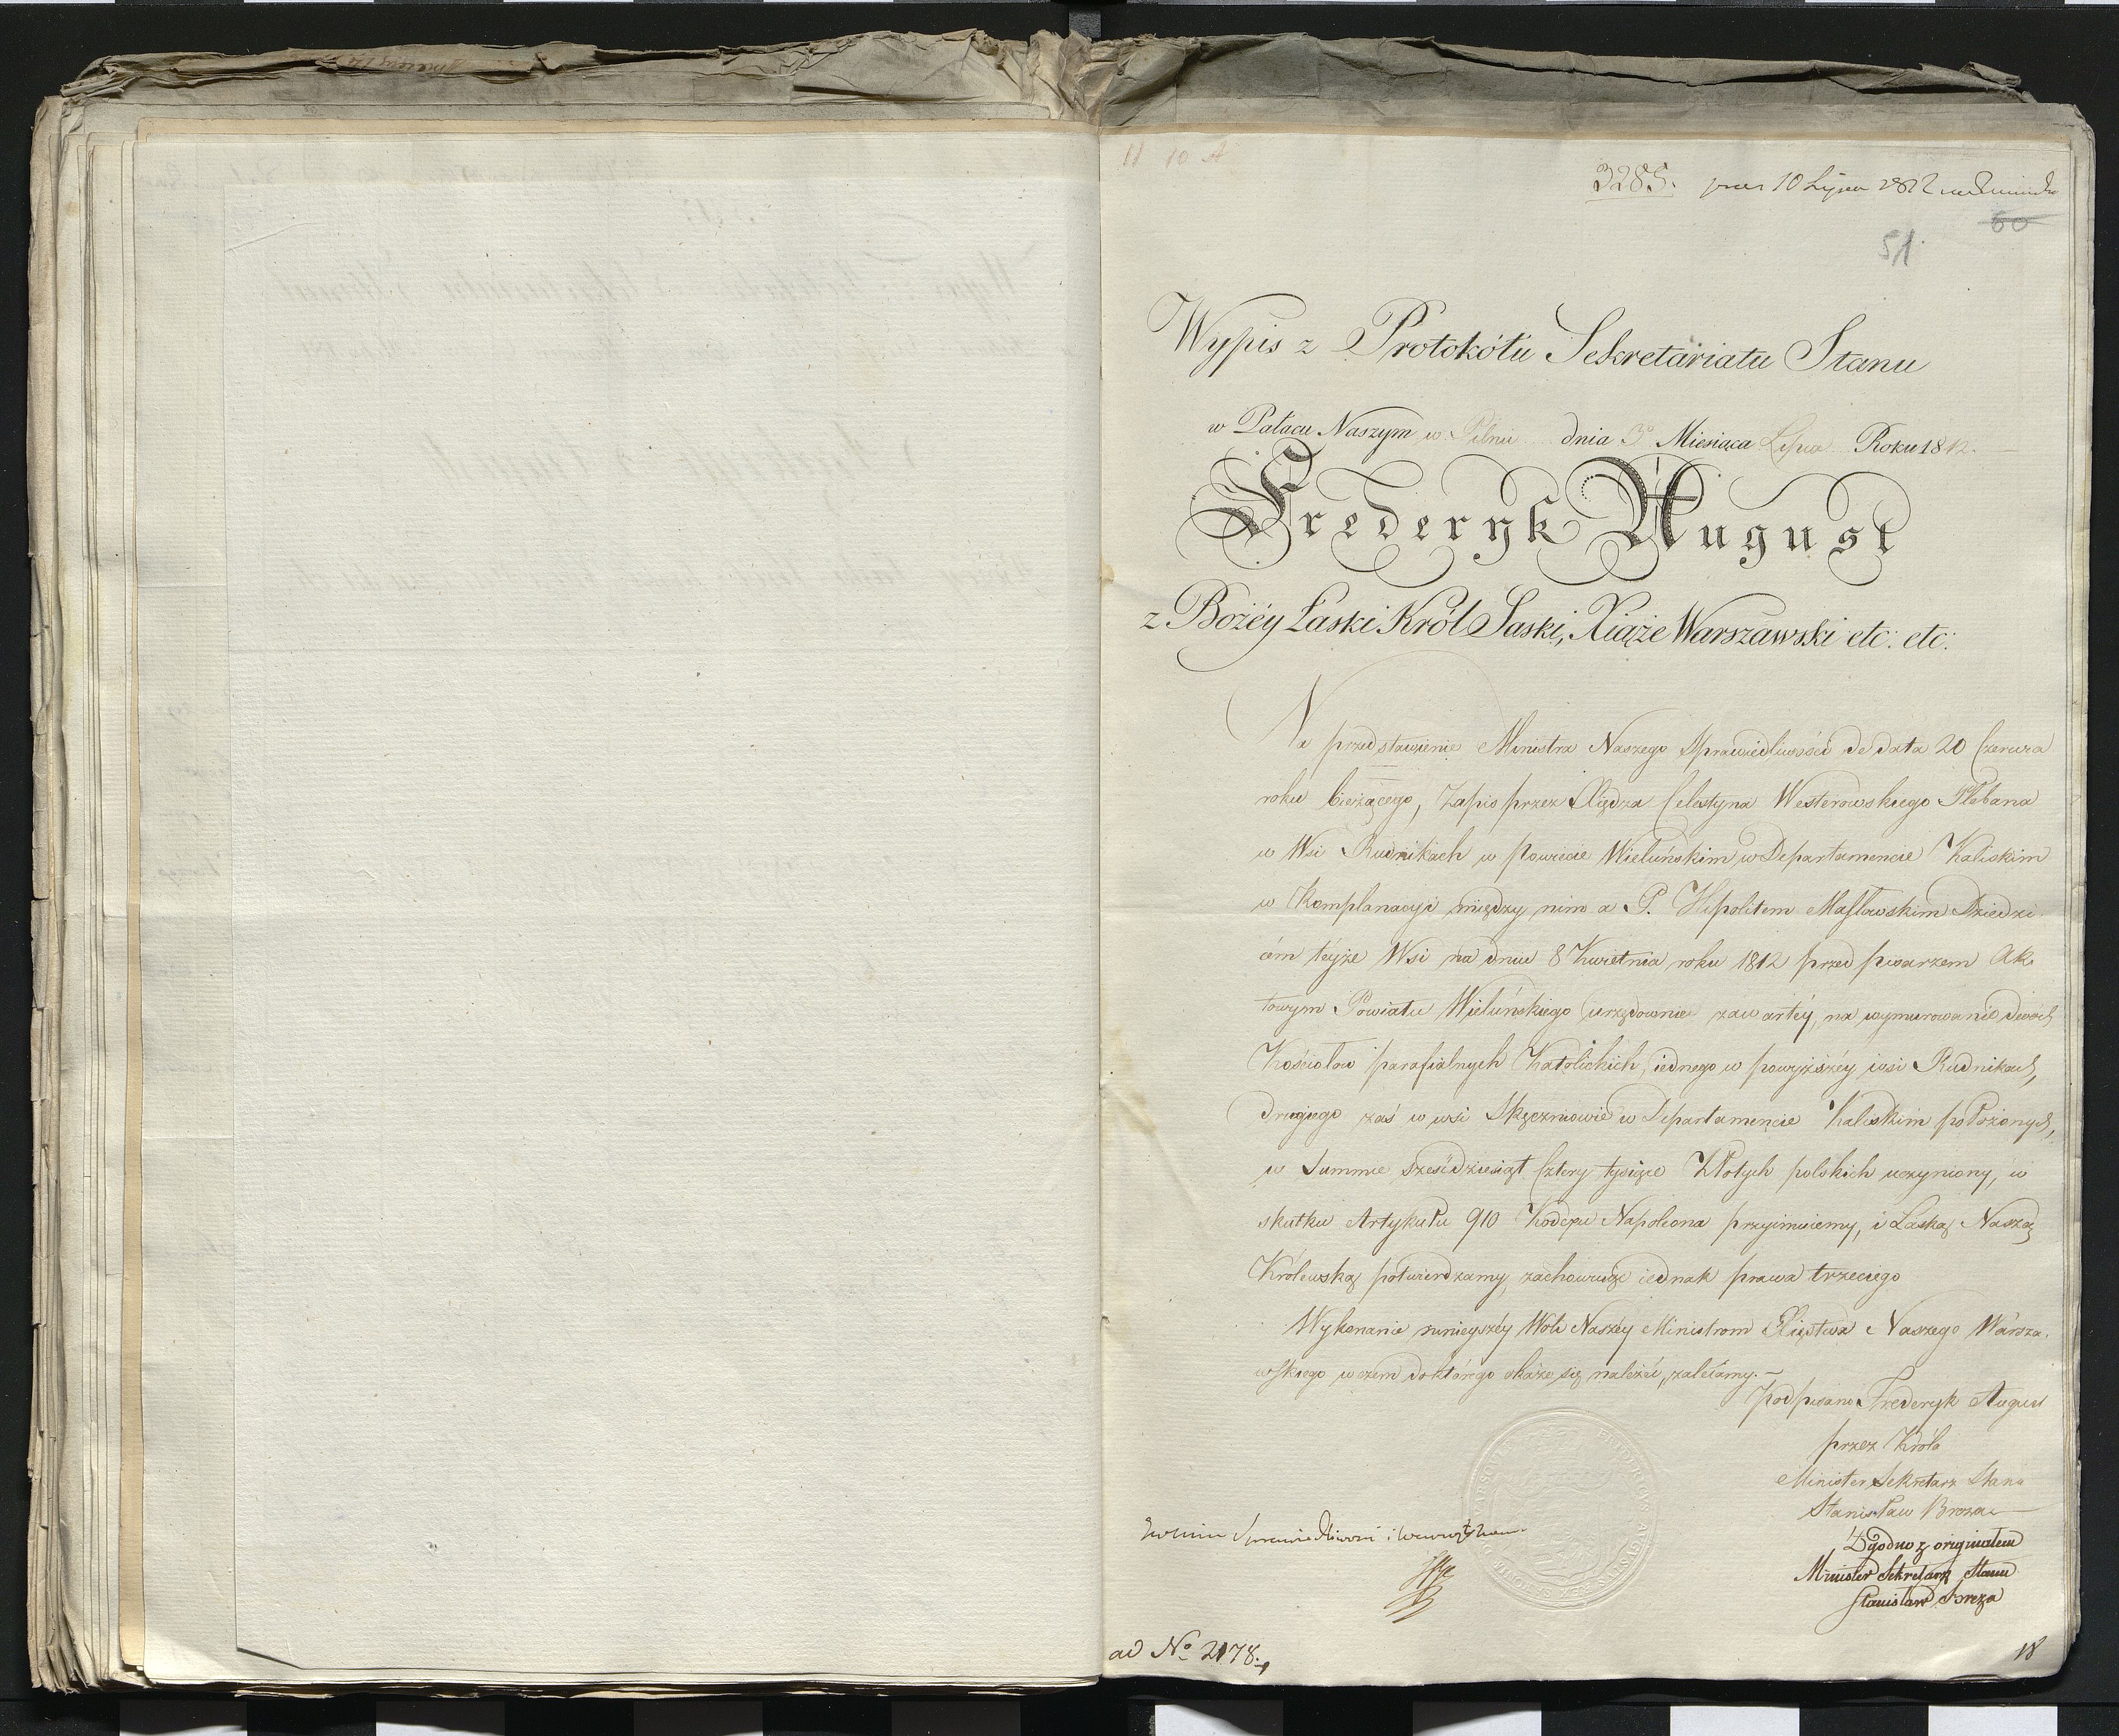 11 10 A
3285. 10 Lipca 1812
60
51.
Wypis z Protokółu Sekretariatu Stanu
w Pałacu Naszym w Pilnic dnia 3° Miesiąca Lipca Roku 1812.
Frederyk August
z Bożéy Łaski Król Saski, Xiąże Warszawski etc: etc:
Na przedstawienie Ministra Naszego Sprawiedliwości de data 20 Czerwca
roku bieżącego, Zapis przez Xiędza Celestyna Westerowskiego Plebana
w Wsi Rudnikach w Powiecie Wieluńskim w Departamencie Kaliskim
w Komplanacyi między nim a P. Hipolitem Masłowskim Dziedzi-
cem téyże Wsi na dniu 8 Kwietnia roku 1812 przed pisarzem Ak-
towym Powiatu Wieluńskiego urzędownie zawartéy, na wymurowanie dwóch
Kościołów parafialnych Katolickich, iednego w powyższéy wsi Rudnikach,
drugiego zaś w wsi Skęczniowie w Departamencie Kaliskim położonych,
w Summie sześćdziesiąt Cztery tysiące Złotych polskich uczyniony, w
skutku Artykułu 910 Kodexu Napoleona przyimuiemy, i Łaską Naszą
Królewską potwierdzamy, zachowuiąc iednak prawa trzeciego
Wykonanie ninieyszéy Woli Naszéy Ministrom Xięstwa Naszego Warsza-
wskiego w czem do którégo okaże się należéć, zalecamy.—
podpisano Frederyk August
przez Króla
Minister Sekretarz Stanu
Stanisław Breza
Zgodno z originałem
Minister Sekretarz Stanu
Stanisław Breza
Sprawiedliwości i
ad No 2178.
18